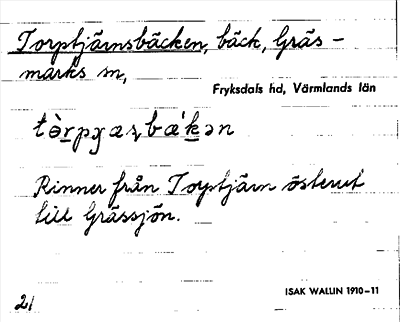 Torptjärnsbäcken, bäck, Gräs-
marks sn,
Fryksdals hd, Värmlands län
Rinner från Torptjärn österut
till Grässjön.
ISAK WALLIN 1910-11
21